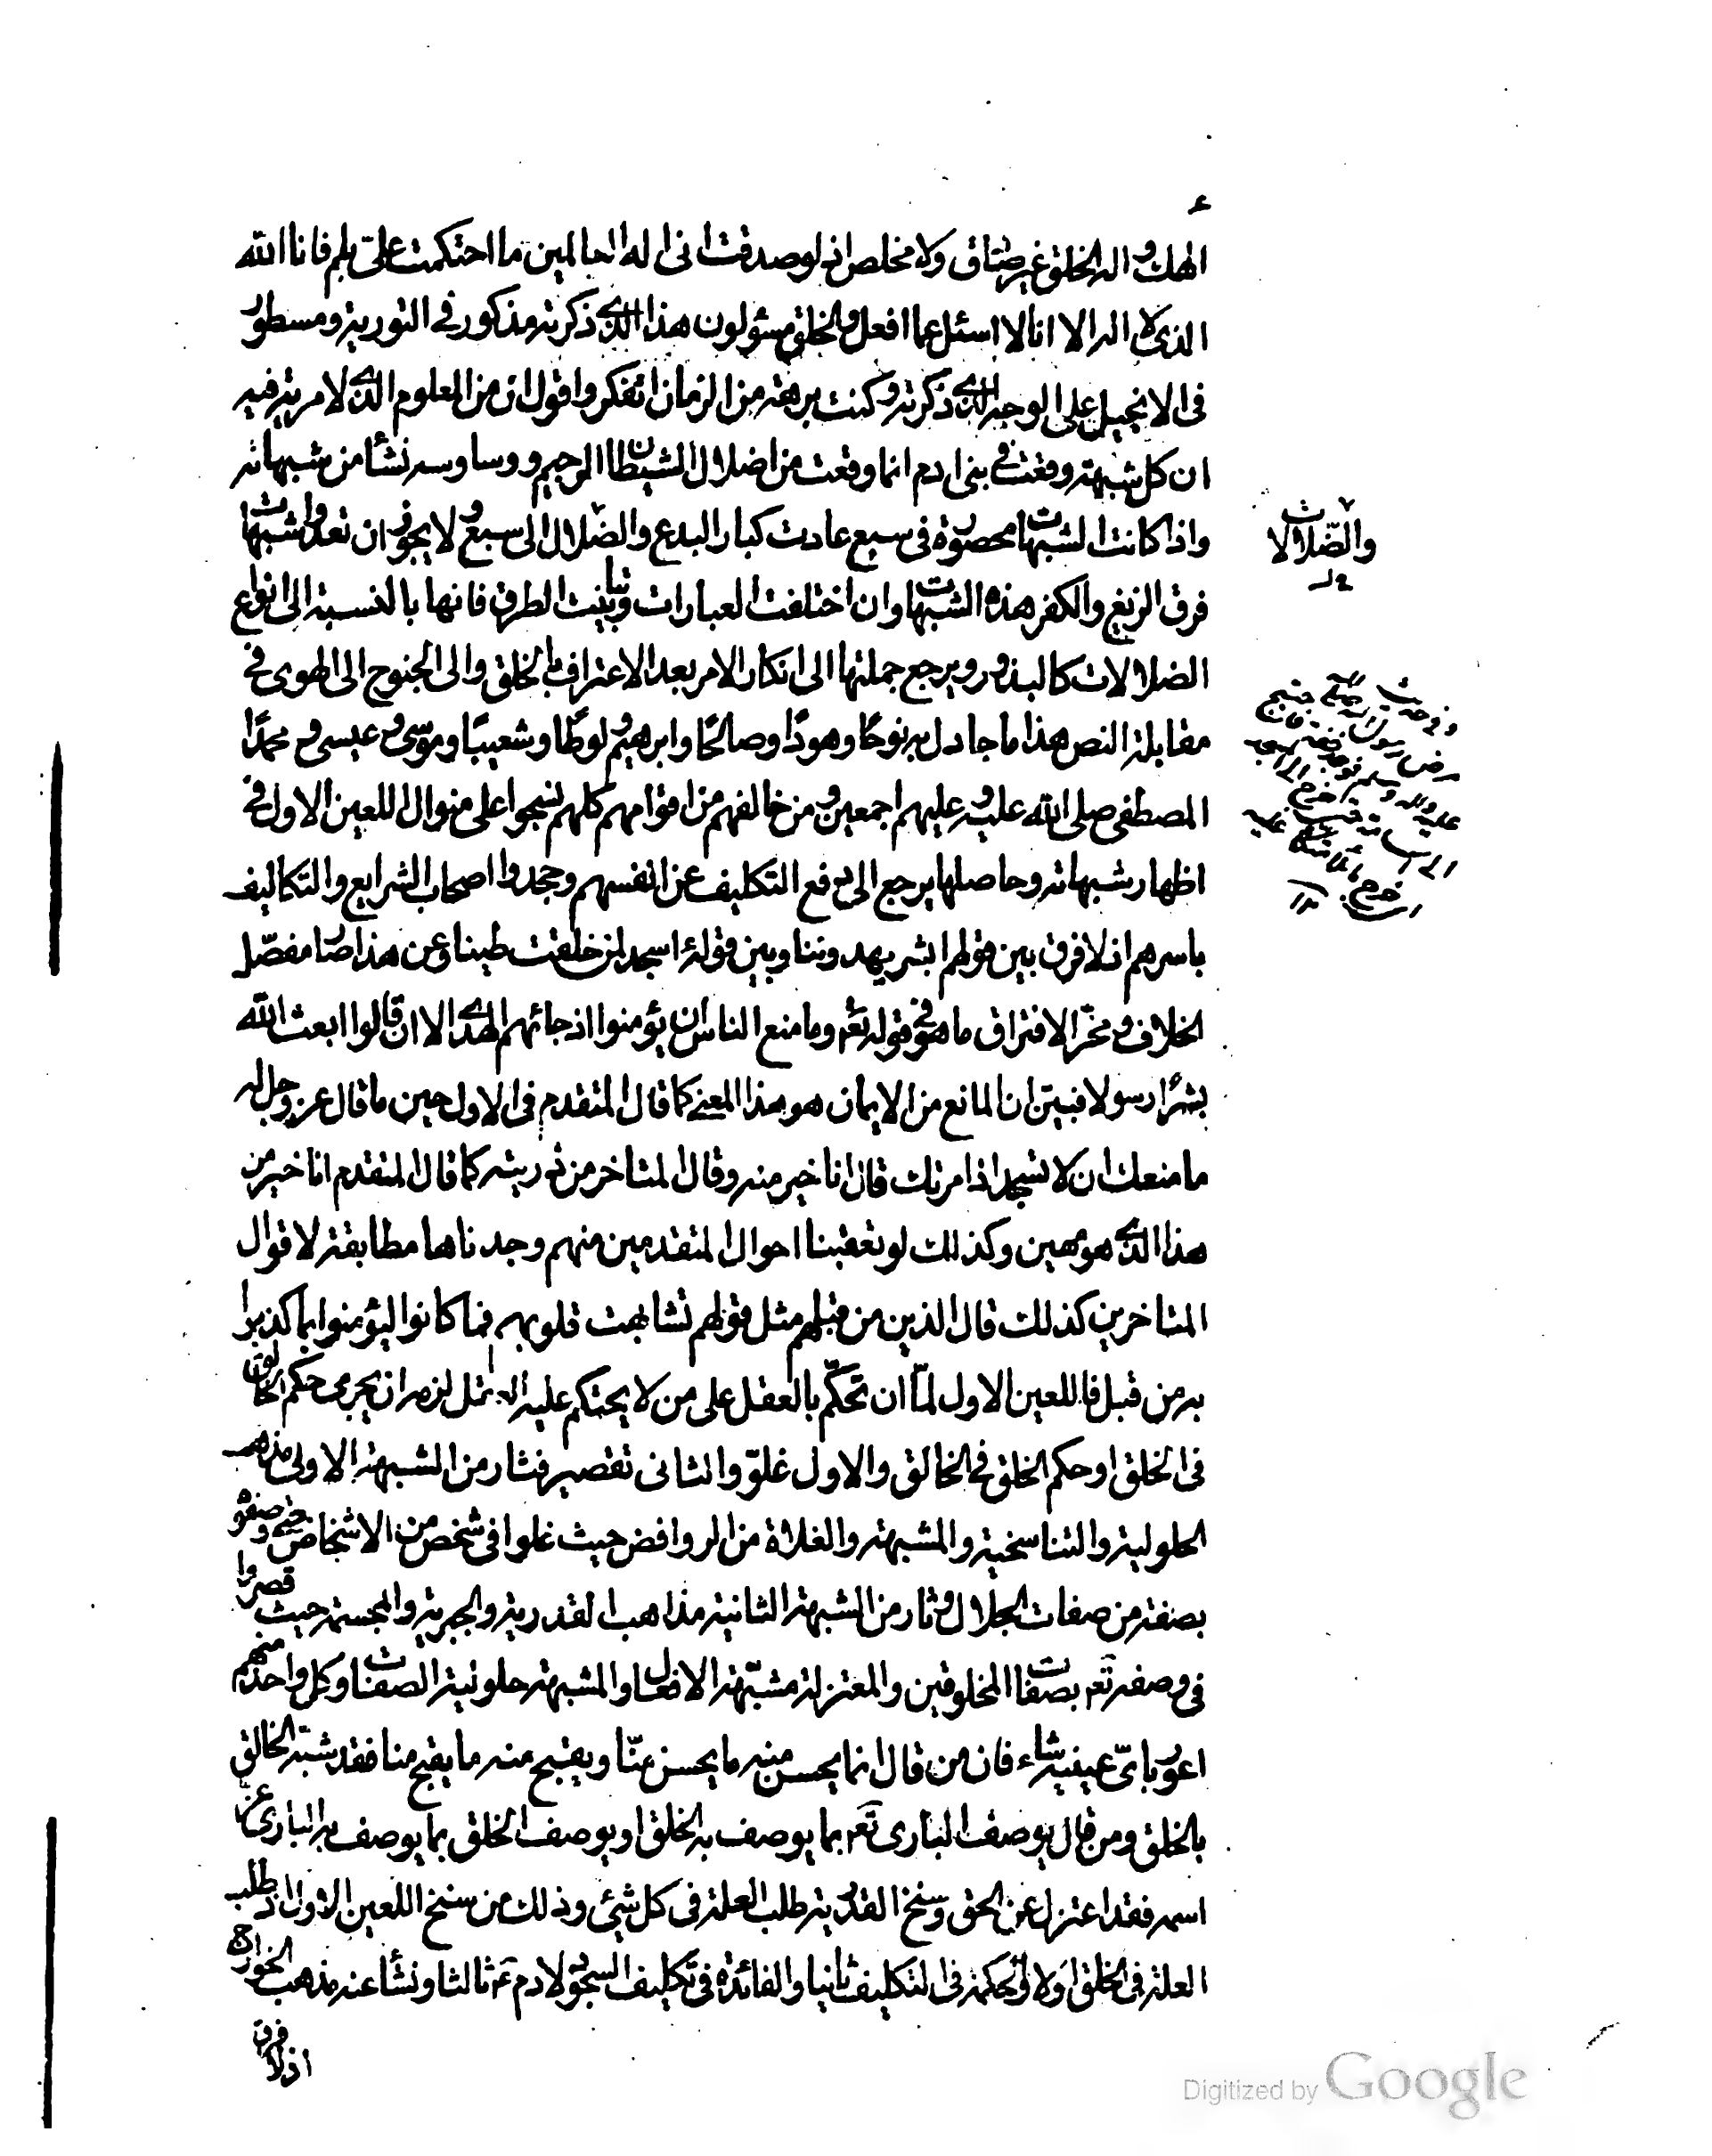 الهك واله الخلق غير صادق ولا مخلص اذ لو صدقت انى اله العالمين ما احتكمت على بلم فانا الله
الذى لا اله الا انا لا اسئل عما افعل والخلق مسؤلون هذا الذى ذكرته مذكور فى التورية ومسطور
فى الانجيل على الوجه الذى ذكرته وكنت برهة من الزمان اتفكر واقول ان من المعلوم الذى لا مرية فيه
ان كل شبهة وقعت فى بنى ادم انما وقعت من اضلال الشيطان الرجيم ووساوسه نشأ من شبهاته
واذا كانت الشبهات محصورة فى سبع عادت كبار البدع والضلال الى سبع ولا يجوز ان تعدوا شبهات
فرق الزيغ والكفر هذه الشبهات وان اختلفت العبارات وتباينت الطرق فانها بالنسبة الى انواع
الضلالات كالبذور ويرجع جملتها الى انكار الامر بعد الاعتراف بالخلق والى الجنوح الى الهوى فى
مقابلة النص هذا ما جادل به نوحًا وهودًا وصالحًا وابرهيم ولوطًا وشعيبًا وموسى وعيسى ومحمدًا
المصطفى صلى الله عليه وعليهم اجمعين ومن خالفهم من اقوامهم كلهم نسجوا على منوال اللعين الاول فى
اظهار شبهاته وحاصلها يرجع الى دفع التكليف عن انفسهم وجحدوا اصحاب الشرايع والتكاليف
باسرهم اذ لا فرق بين قولهم ابشر يهدوننا وبين قوله ااسجد لمن خلقت طينا وعن هذا صار مفصّل
الخلاف ومحزّ الافتراق ما هو فى قوله تعم وما منع الناس ان يؤمنوا اذ جائهم الهدى الا ان قالوا ابعث الله
بشرًا رسولا فبيّن ان المانع من الايمان هو هذا المعنى كما قال المتقدم فى الاول حين ما قال عز وجل له
ما منعك ان لا تسجد اذ امرتك قال انا خير منه وقال المتاخر من ذريته كما قال المتقدم انا خير من
هذا الذى هو مهين وكذلك لو تعقبنا احوال المتقدمين منهم وجدناها مطابقة لاقوال
المتاخرين كذلك قال الذين من قبلهم مثل قولهم تشابهت قلوبهم فما كانوا ليؤمنوا بما كذبوا
به من قبل فاللعين الاول لمّا ان تحكّم بالعقل على من لا يحتكم عليه العقل لزمه ان يجرى حكم الخالق
فى الخلق او حكم الخلق فى الخالق والاول غلوّ والثانى تقصير فثار من الشبهة الاولى مذهب
الحلولية والتناسخية والمشبهة والغلاة من الروافض حيث غلوا فى شخص من الاشخاص حتى وصفوه
بصفة من صفات الجلال وثار من الشبهة الثانية مذاهب القدرية والجبرية والمجسمة حيث قصروا
فى وصفه تعم بصفات المخلوقين والمعتزلة مشبّهة الافعال والمشبهة حلولية الصفات وكل واحد منهم
اعور باىّ عينيه شاء فان من قال انما يحسن منه ما يحسن منّا ويقبح منه ما يقبح منا فقد شبّه الخالق
بالخلق ومن قال يوصف البارى تعم بما يوصف به الخلق او يوصف الخلق بما يوصف به البارى عز
اسمه فقد اعتزل عن الحق وسنخ القدرية طلب العلة فى كل شىء وذلك من سنخ اللعين الاول اذ طلب
العلة فى الخلق اولا والحكمة فى التكليف ثانيا والفائدة فى تكليف السجود لادم عم ثالثا ونشأ عنه مذهب الخوارج
اذ لا فرق
والضّلالات